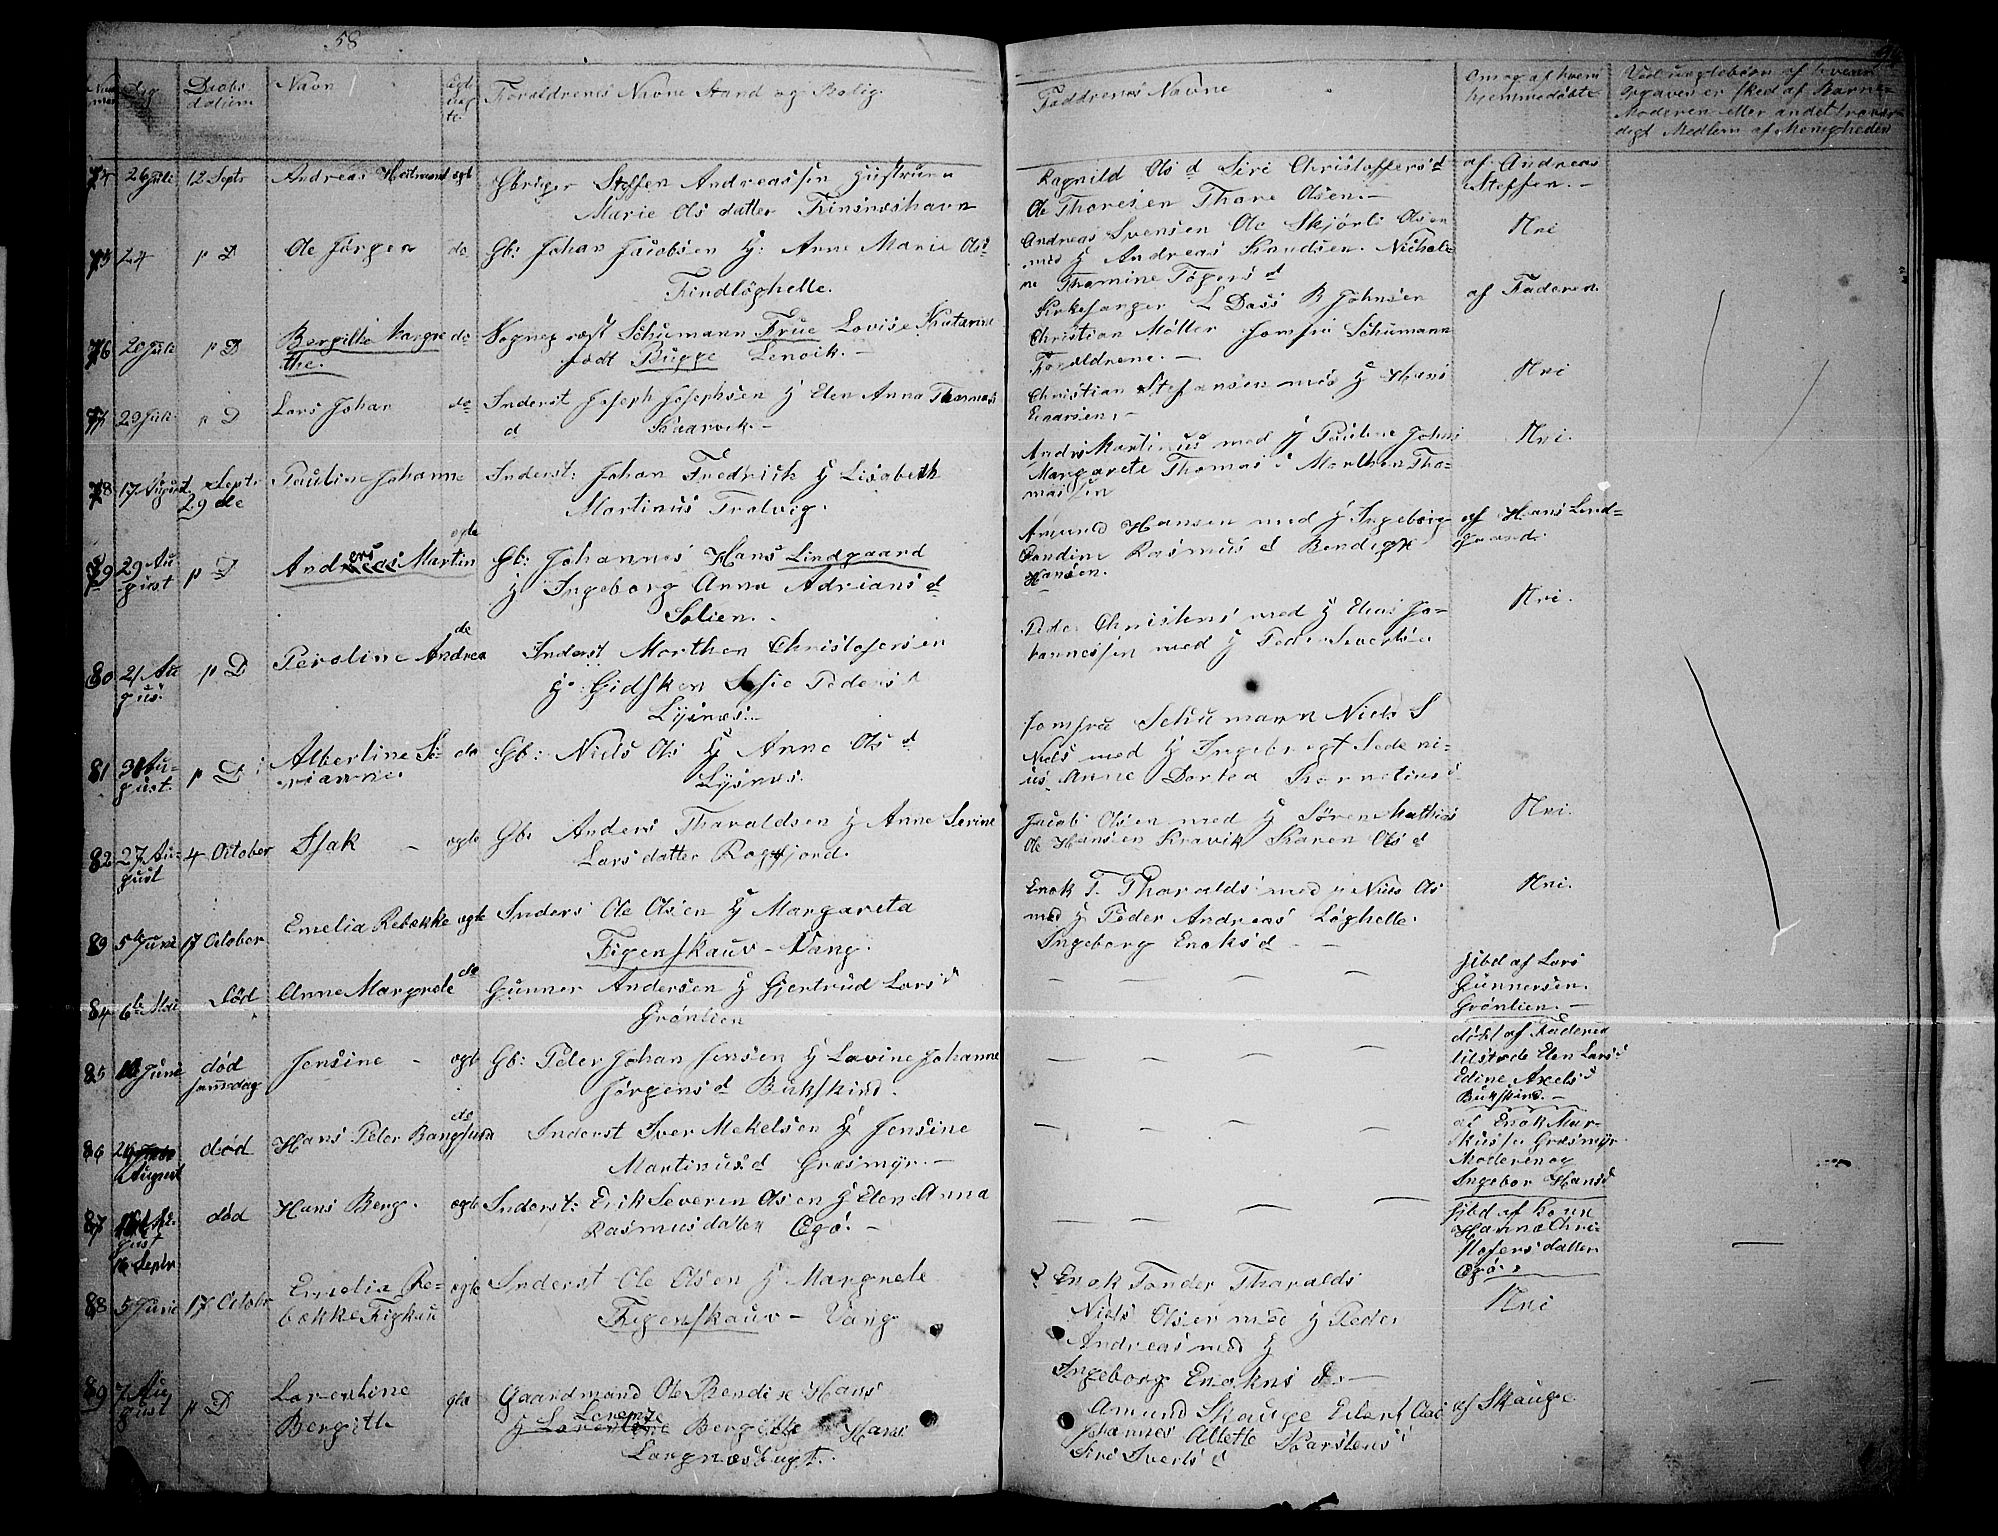 58
Daabs
datum
Navn
Forældrenes Navne Stand og Bolig
Faddrenes Navne
Om og af hvem
hjemmedøbte
74 26 Juli 12 Septr Andreas Hartmand ægte
Steffen Andreassen Hustrue
Marie Ols datter Finsnæshavn
Ragnild Ols d Siri Christoffers d
Ole Thoresen Thore Olsen.
af Andreas
Steffen.
75 24 p D Ole Jørgen do Gb: Johan Jacobsen H: Anne Marie Ols
Findløghelle.
Andreas Svensen Ole Skjørli Olsen
med H Andreas Knudsen. Nichole
ne Thomine Tøgers d
Nei
76 20 Juli p D Bergitte Margre do
the.
Sogneprest Schumann Frue Lovise Katarine
født Bugge Lenvik.
Kirkesanger L Dass B Johnsen
Christian Möller Jomfru Schumann
Forældrene.
af Faderen
77 29 Juli p D Lars Johan do Inderst Joseph Josephsen H Elen Anna Thomas
d Skaarvik.
Christian Stefansen med H Hans
Einarsen.
Nei
78 17 August Septr 29 de Pauline Johanne
Inderst: Johan Fredrik H Lisabeth
Martinus Trolvig.
Anders Martinus med H Pauline Johns
Margarete Thomas d Morthen Tho-
massen
Nei.
79 29 Au-
gust p D Anders Martin ægte
Gb: Johannes Hans Lindgaard
H Ingeborg Anna Adrians d
Solien.
Amund Hansen med H Ingeborg
Pandine Rasmus d Bendigt
Hansen.
af Hans Lind-
gaard.
80 21 Au
gus. p D Peroline Andrea do
Inderst Morthen Christofersen
H. Gidsken Sofie Peders d
Lysnæs.
Peder Christens med H Elias Jo-
hannessen med H Peder Sivertsen
Nei.
81 31 Au-
gust. p D Albertine Se-
rianne do Gb: Niels Ols H Anne Ols d
Lysnæs.
Jomfru Schumann Niels S
Niels med H Ingebregt Sedeni-
us Anne Dortea Kornelius d
82 27 Au-
gust 4 October Isak ægte Gb: Anders Tharaldsen H Anne Serine
Lars datter Rogfjord.
Jacob Olsen med H Søren Mathias
Ole Hansen Kravik Karen Ols d
Nei.
83 5te Juni 17 October Emelia Rebekke ægte Inders Ole Olsen H Margareta
Figenskauv - Vang.
Enok T. Tharalds med H Niels Ols
med H Peder Andreas Løghelle
Ingeborg Enoks d
Nei.
84 6te Mai død Anne Margrete do Gunner Andersen H Gjertrud Lars d
Grønlien
hjbd af Lars
Gunnersen.
Grønlien.
85 Juni død
samdag Jensine ægte Gb: Peter Johan Jensen H Lavine Johanne
Jørgens d Bukskind.
døbt af Faderen
tilstede Elen Lars d
Edine Axels d
Bukskind.
86 24
August død Hans Peter Bangsund do
Inderst Iver Mekelsen H Jensine
Martinus d Græsmyr.
af Enok Mar-
kussen Græsmyr.
Moderen og
Ingebor Hans d
87
16 Septr død Hans Berg. ægte Inderst: Erik Severin Olsen H Elen Anna
Rasmus datter Øgø.
hjbd af Konn
Hanna Chri-
stofers datter
Øgø.
88 5 Juni 17 Octobr Emelia Re-
bekke Figskau ægte Inderst Ole Olsen H Margrete
Figenskauv - Vang
Enok Tonder Tharalds
Niels Olsen med H Peder
Andreas med H
Ingeborg Enokns d.
Nei
89 7 Au
gust p D Lorentine
Bergitte gte
Gaardmand Ole Bendix Hans
H Lorentse Bergitte Hans
Langnæsbugt.
Amund Skauge Eilert Ols
Johannes Alette Karstens d
Siri Iverts d
af Skauge